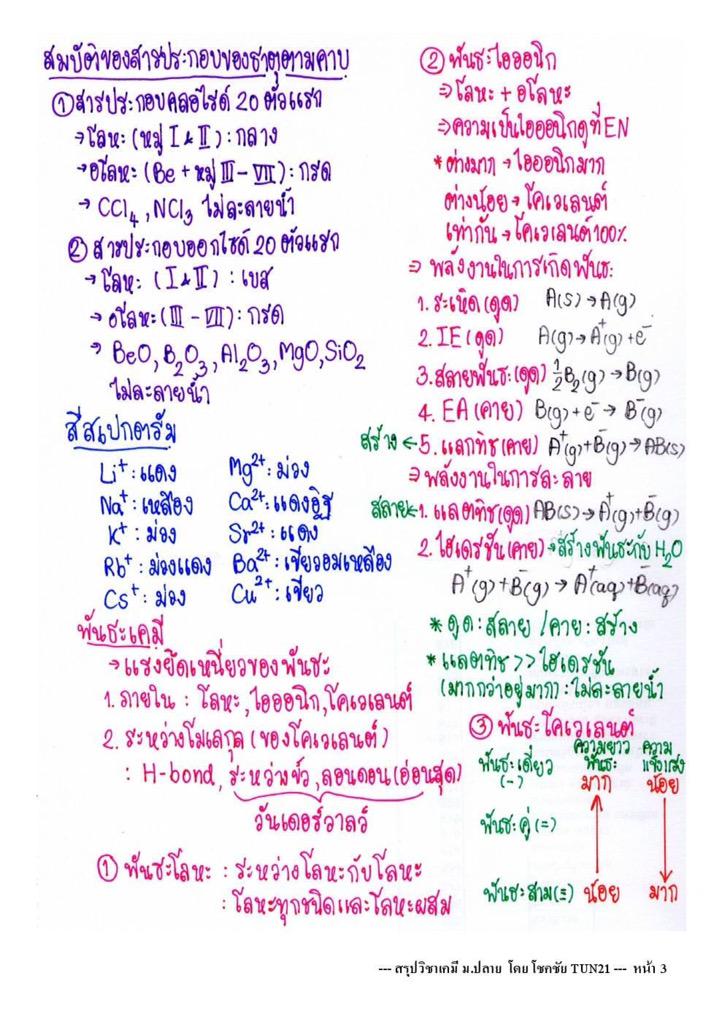 สมบัติของสารประกอบของธาตุตามคาบ
① สารประกอบคลอไรด์ 20 ตัวแรก
→ โลหะ (หมู่ I & II) : กลาง
→ อโลหะ (Be + หมู่ III - VII) : กรด
→ CCl₄, NCl₃ ไม่ละลายน้ำ
② สารประกอบออกไซด์ 20 ตัวแรก
→ โลหะ (I & II) : เบส
→ อโลหะ (III - VII) : กรด
→ BeO, B₂O₃, Al₂O₃, MgO, SiO₂
ไม่ละลายน้ำ
สีสเปกตรัม
Li⁺ : แดง Mg²⁺ : ม่วง
Na⁺ : เหลือง Ca²⁺ : แดงอิฐ
K⁺ : ม่วง Sr²⁺ : แดง
Rb⁺ : ม่วงแดง Ba²⁺ : เขียวอมเหลือง
Cs⁺ : ม่วง Cu²⁺ : เขียว
พันธะเคมี
→ แรงยึดเหนี่ยวของพันธะ
1. ภายใน : โลหะ, ไอออนิก, โคเวเลนต์
2. ระหว่างโมเลกุล (ของโคเวเลนต์)
: H-bond, ระหว่างขั้ว, ลอนดอน (อ่อนสุด)
วันเดอร์วาลว์
① พันธะโลหะ : ระหว่างโลหะกับโลหะ
: โลหะทุกชนิดและโลหะผสม
② พันธะไอออนิก
⇒ โลหะ + อโลหะ
⇒ ความเป็นไอออนิกดูที่ EN
* ต่างมาก → ไอออนิกมาก
ต่างน้อย → โคเวเลนต์
เท่ากัน → โคเวเลนต์ 100%
⇒ พลังงานในการเกิดพันธะ
1. ระเหิด (ดูด) A(s) → A(g)
2. IE (ดูด) A(g) → A⁺(g) + e⁻
3. สลายพันธะ (ดูด) ½B₂(g) → B(g)
4. EA (คาย) B(g) + e⁻ → B⁻(g)
สร้าง ← 5. แลกทิช (คาย) A⁺(g) + B⁻(g) → AB(s)
⇒ พลังงานในการละลาย
สลาย ← 1. แลตทิช (ดูด) AB(s) → A⁺(g) + B⁻(g)
2. ไฮเดรชัน (คาย) → สร้างพันธะกับ H₂O
A⁺(g) + B⁻(g) → A⁺(aq) + B⁻(aq)
* ดูด : สลาย / คาย : สร้าง
* แลตทิช >> ไฮเดรชัน
(มากกว่าอยู่มาก) : ไม่ละลายน้ำ
③ พันธะโคเวเลนต์
ความยาวพันธะ ความแข็งแรง
พันธะเดี่ยว (-) มาก น้อย
พันธะคู่ (=)
พันธะสาม (≡) น้อย มาก
--- สรุปวิชาเคมี ม.ปลาย โดย โชคชัย TUN21 --- หน้า 3